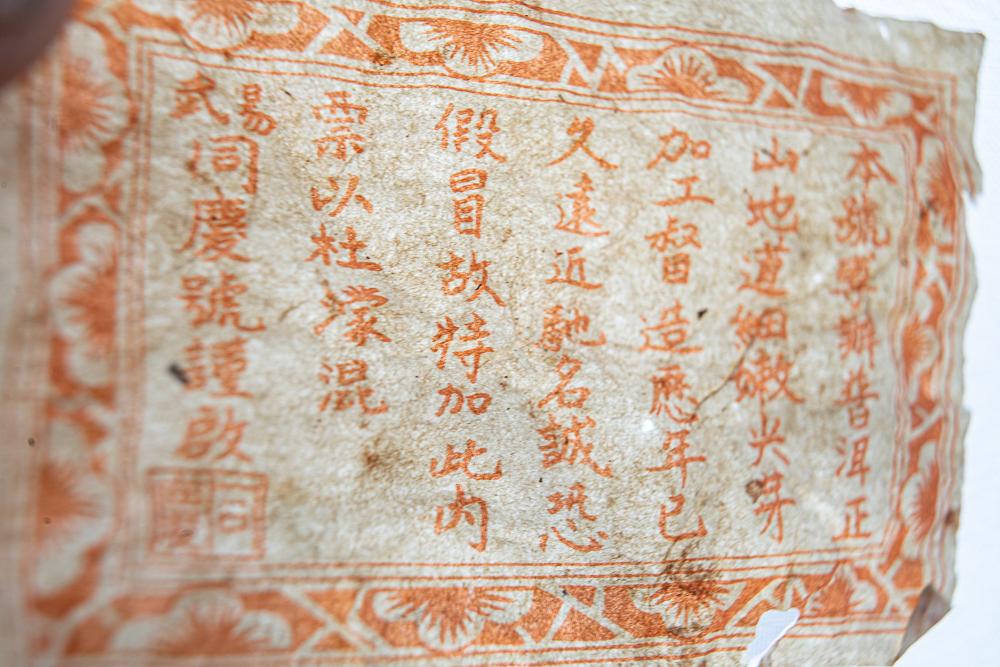 本號專辦普洱正
山地道細嫩尖芽
加工督造應年已
久遠近馳名誠恐
假冒故特加此内
票以杜濛混
易武同慶號謹啟